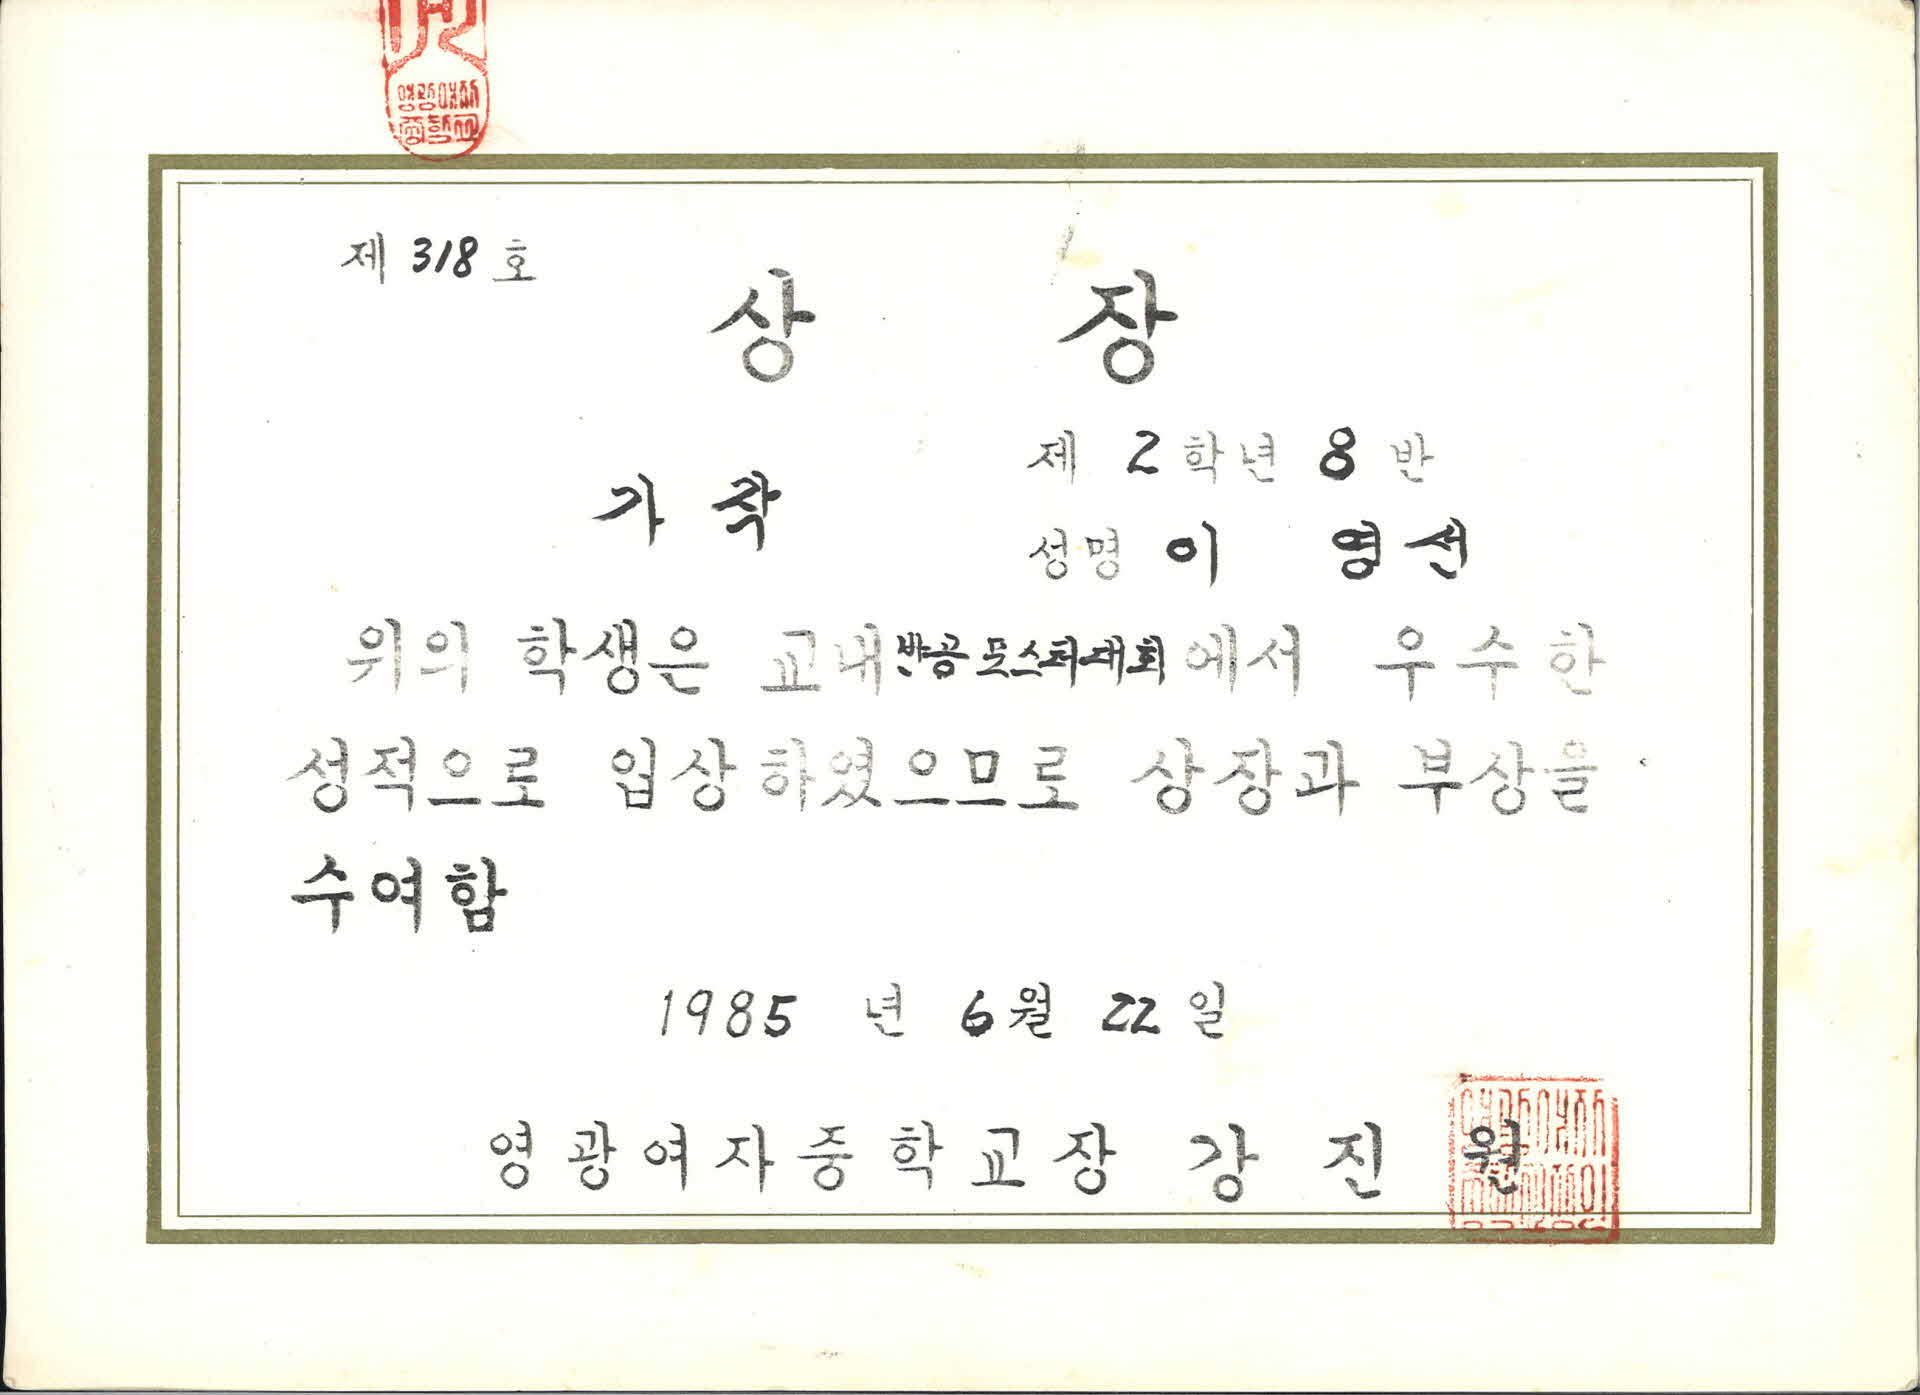 영광여자
중학교
제 318 호
상 장
제 2 학년 8 반
가작
성명 이 영선
위의 학생은 교내 반공 포스터대회에서 우수한
성적으로 입상하였으므로 상장과 부상을
수여함
1985 년 6월 22일
영광여자중학교장 강 진 원